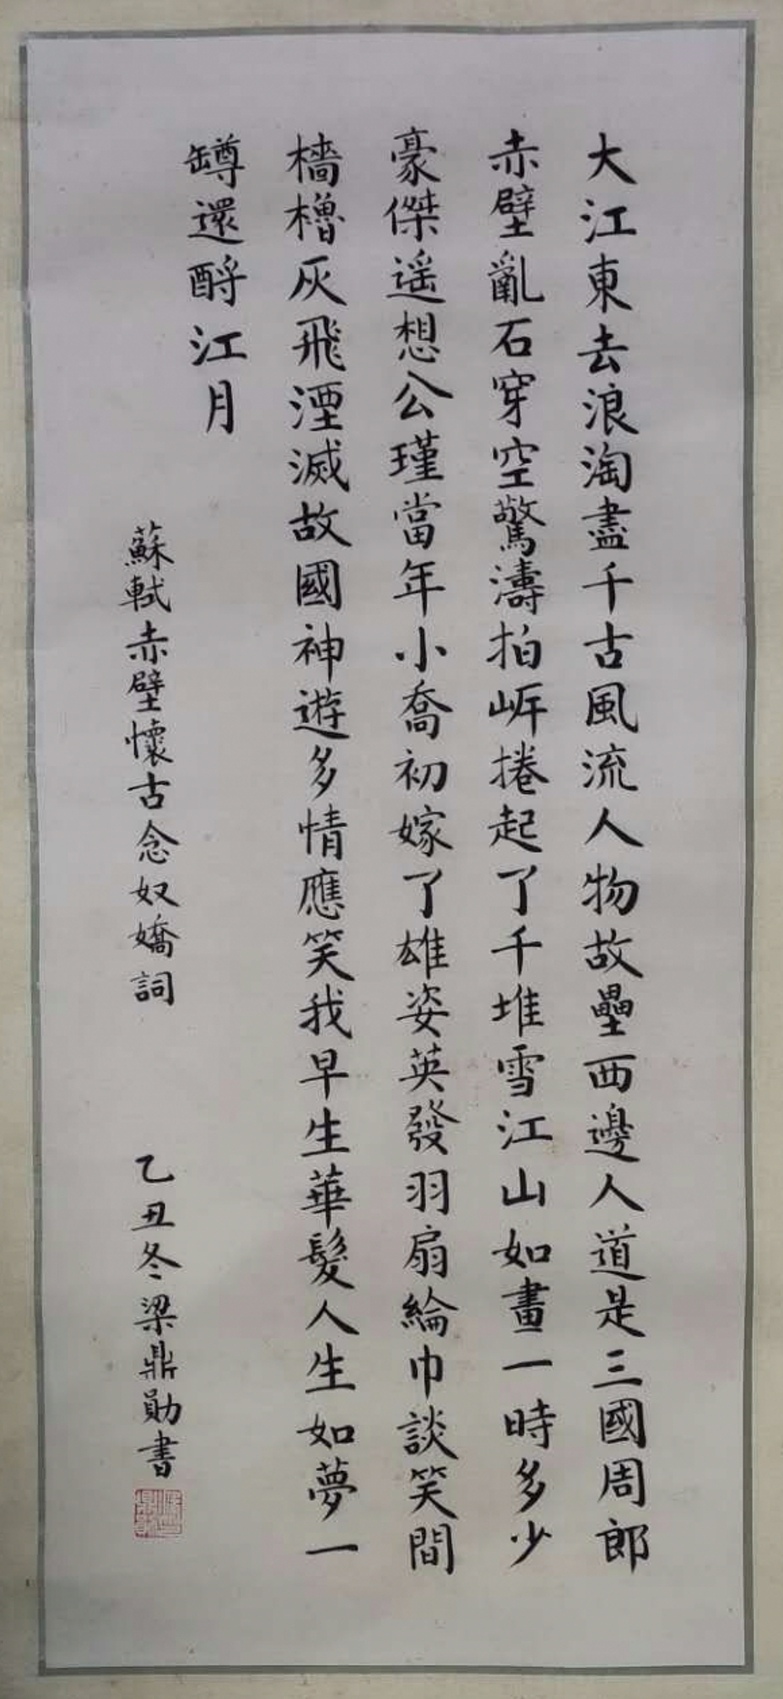 大江東去浪淘盡千古風流人物故壘西邊人道是三國周郎
赤壁亂石穿空驚濤拍岍捲起了千堆雪江山如畫一時多少
豪傑遥想公瑾當年小喬初嫁了雄姿英發羽扇綸巾談笑間
檣櫓灰飛湮滅故國神遊多情應笑我早生華髮人生如夢一
罇還酹江月
蘇軾赤壁懷古念奴嬌詞
乙丑冬梁鼎勛書